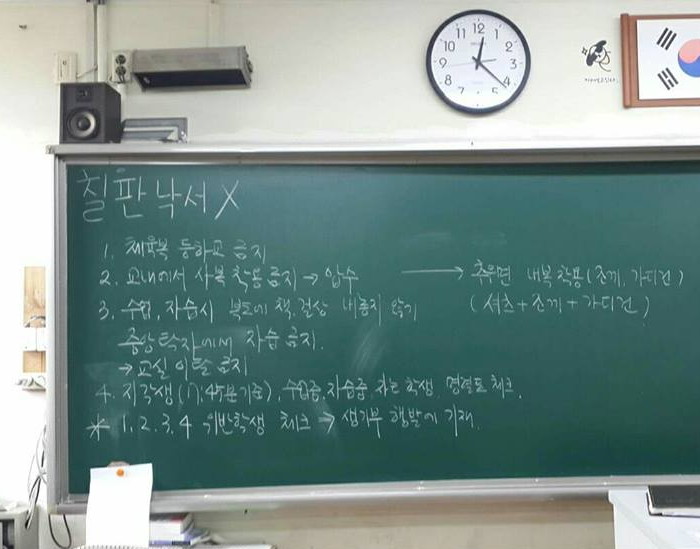 칠판낙서X
1. 체육복 등하교 금지
2. 교내에서 사복 착용 금지 → 압수 → 추우면 내복 착용(조끼, 가디건)
(셔츠+조끼+가디건)
3. 수업, 자습시 복도에 책, 걸상 내놓지 않기
중앙탁자에서 자습 금지.
→ 교실 이탈 금지
4. 지각생(7:45분 기준), 수업중, 자습중 자는 학생 명렬표 체크.
* 1, 2, 3, 4 위반학생 체크 → 생기부 행발에 기재.
12
1
2
3
4
5
6
7
8
9
10
11